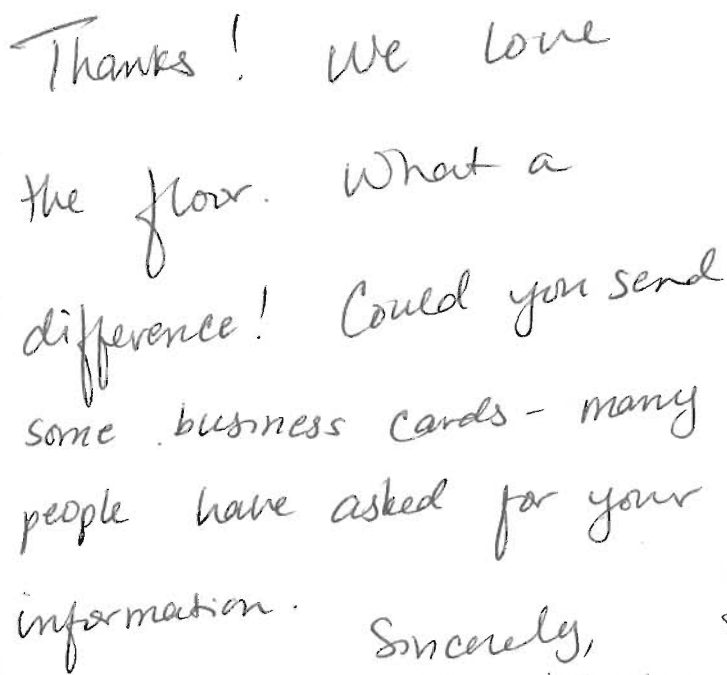 Thanks! We love
the floor. What a
difference! Could you send
some business cards - many
people have asked for your
information.
Sincerely,